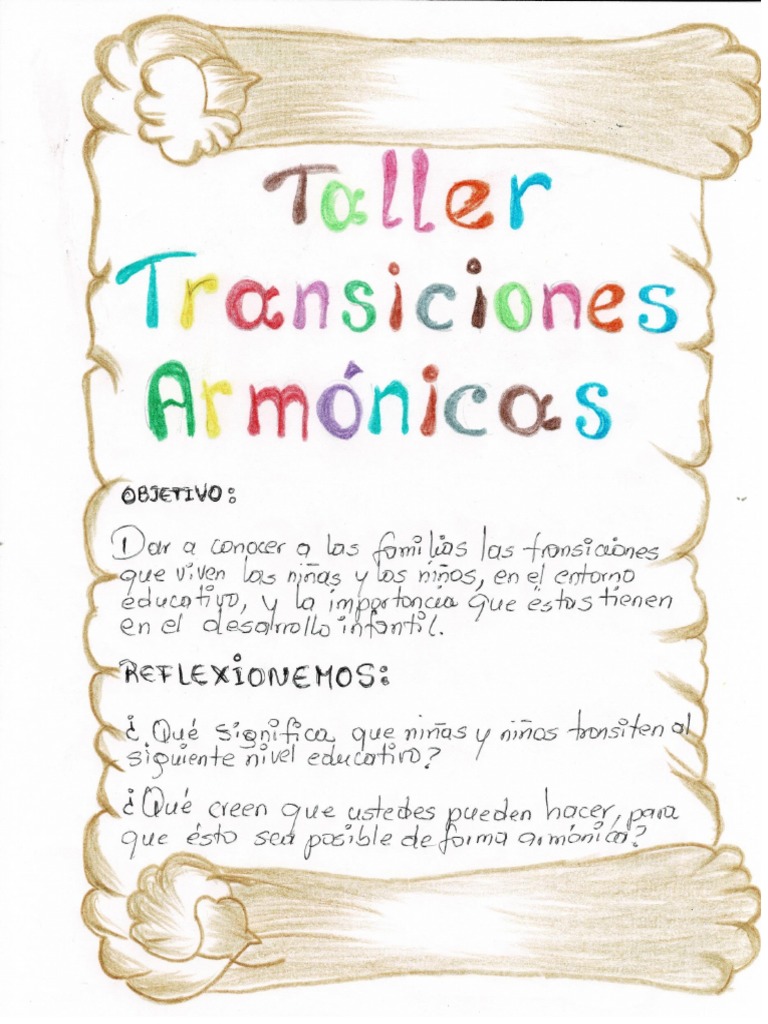 Taller
Transiciones
Armónicas
OBJETIVO:
Dar a conocer a las familias las transiciones
que viven las niñas y los niños, en el entorno
educativo, y la importancia que éstas tienen
en el desarrollo infantil.
REFLEXIONEMOS:
¿Qué significa que niñas y niños transiten al
siguiente nivel educativo?
¿Qué creen que ustedes pueden hacer, para
que ésto sea posible de forma armónica?